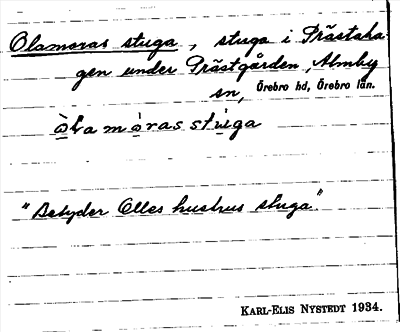 Olamoras stuga, stuga i Prästaha
gen under Prästgården, Almby
sn, Örebro hd, Örebro län.
òla mòras stu̇ga
"Betyder Olles hustrus stuga."
KARL-ELIS NYSTEDT 1934.